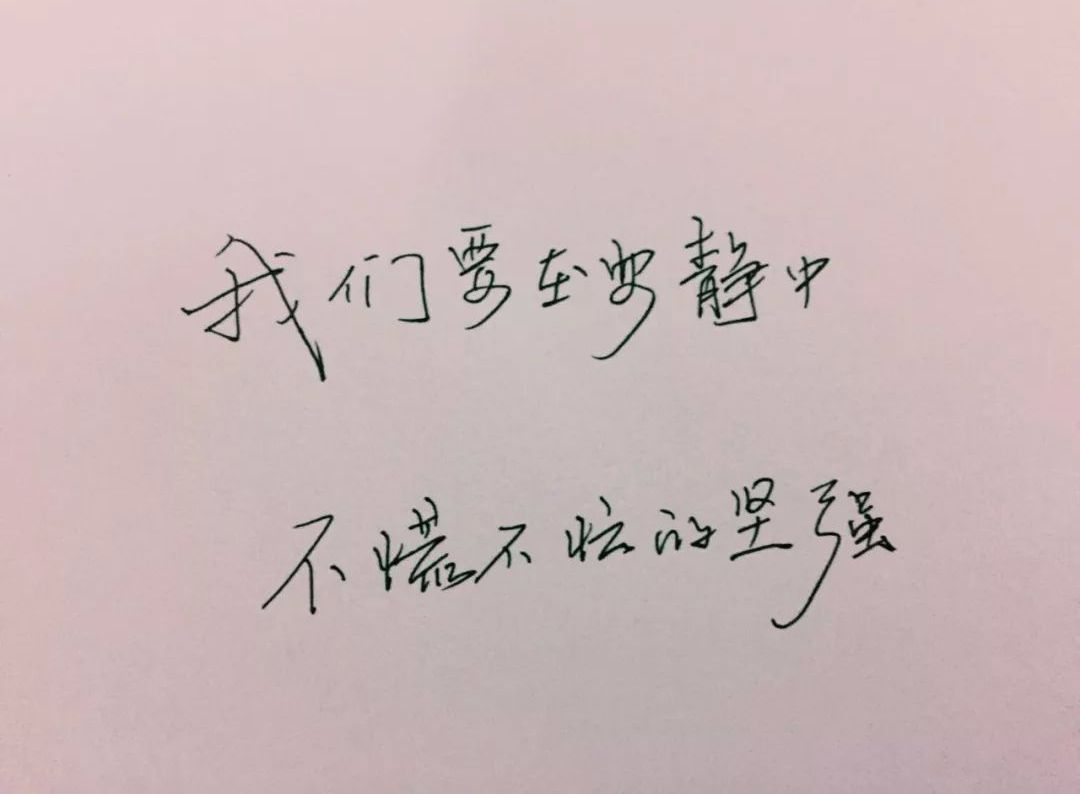 我们要在安静中
不慌不忙的坚强